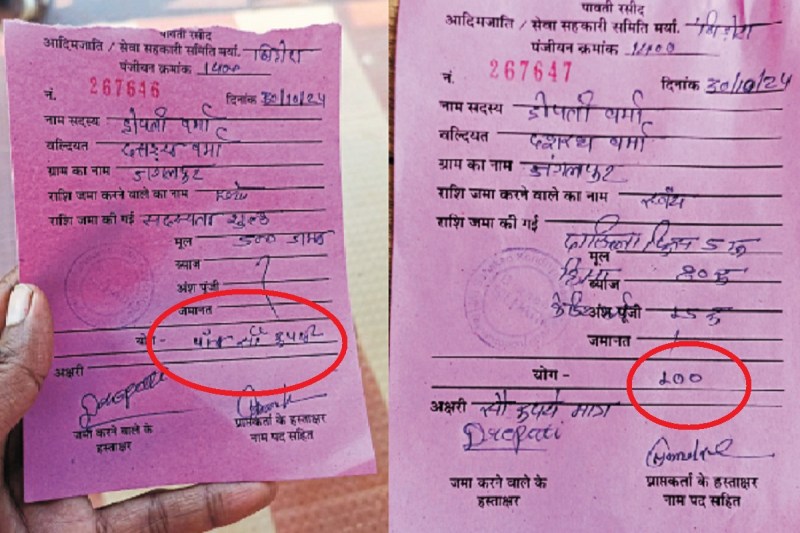 पावती रसीद
आदिमजाति / सेवा सहकारी समिति मर्या.
पंजीयन क्रमांक 1400
नं. 267646 दिनांक 30/10/24
नाम सदस्य द्रोपती वर्मा
वल्दियत दशरथ वर्मा
ग्राम का नाम जंगलपुर
राशि जमा करने वाले का नाम स्वयं
राशि जमा की गई सदस्यता शुल्क
मूल 500
ब्याज
अंश पूंजी
जमानत
योग - पाँच सौ रुपये
अक्षरी
Dropati
जमा करने वाले के हस्ताक्षर
प्राप्तकर्ता के हस्ताक्षर नाम पद सहित
पावती रसीद
आदिमजाति / सेवा सहकारी समिति मर्या.
पंजीयन क्रमांक 1400
नं. 267647 दिनांक 30/10/24
नाम सदस्य द्रोपती वर्मा
वल्दियत दशरथ वर्मा
ग्राम का नाम जंगलपुर
राशि जमा करने वाले का नाम स्वयं
राशि जमा की गई
मूल
ब्याज
अंश पूंजी
जमानत
योग - 100
अक्षरी सौ रुपये मात्र
Dropati
जमा करने वाले के हस्ताक्षर
प्राप्तकर्ता के हस्ताक्षर नाम पद सहित